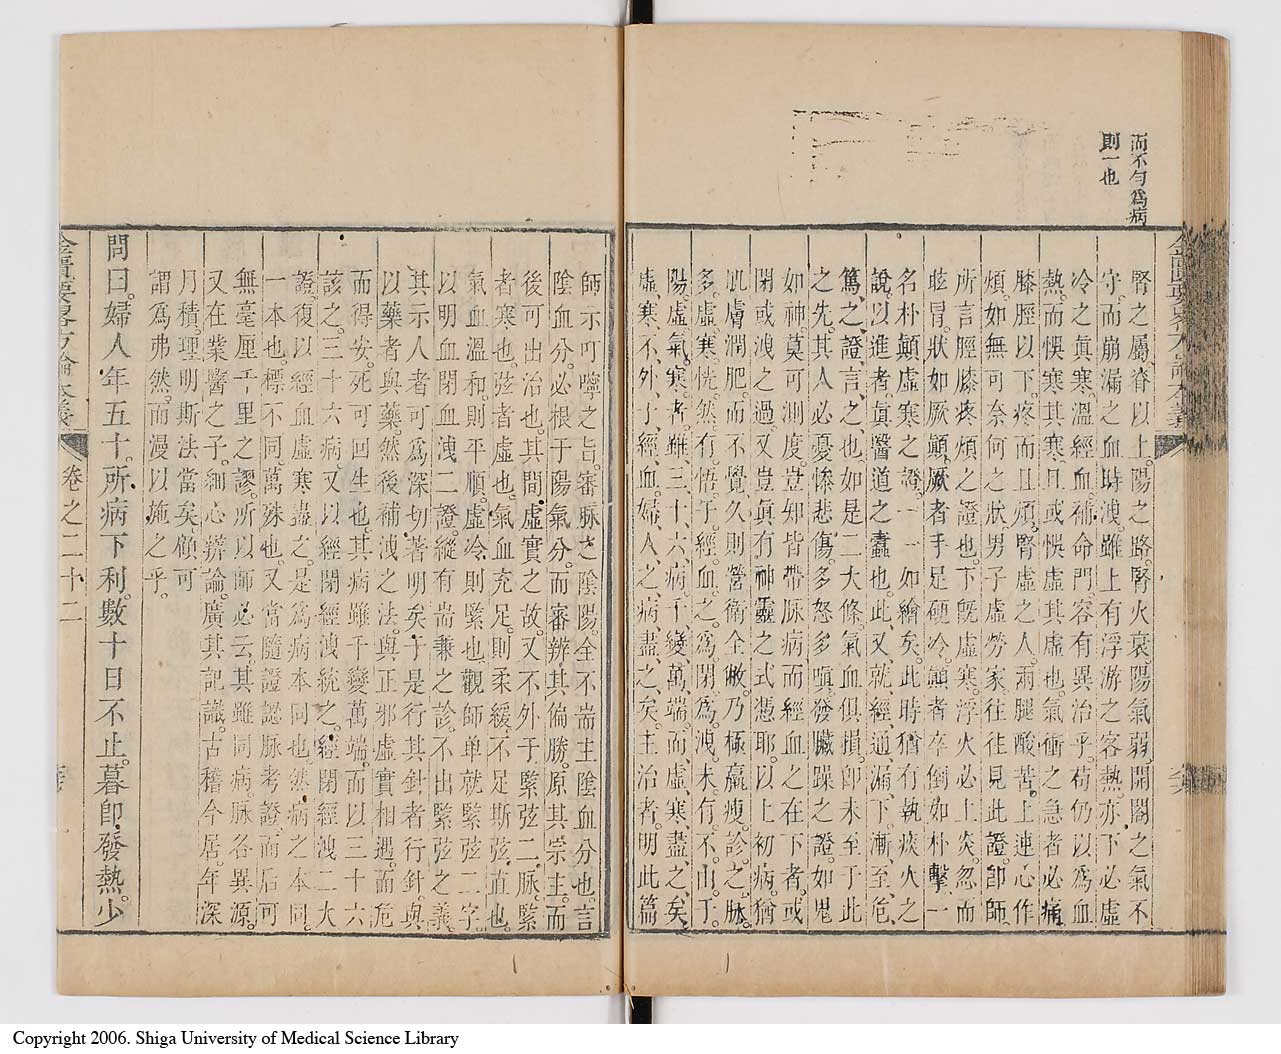 而不勻爲病
則一也
腎之屬脊以上陽之路腎火衰陽氣弱開闔之氣不
守而崩漏之血時洩雖上有浮游之客熱亦下必虛
冷之眞寒溫經血補命門容有異治乎苟仍以爲血
熱而悞寒其寒且或悞虛其虛也氣衝之急者必痛
膝脛以下疼而且煩腎虛之人兩腿酸苦上連心作
煩如無可奈何之狀男子虛勞家往往見此證卽師
所言脛膝疼煩之證也下旣虛寒浮火必上炎忽而
眩冒狀如厥顚厥者手足硬冷顚者卒倒如朴擊一
名朴顚虛寒之證一一如繪矣此時猶有執痰火之
說以進者眞醫道之蠹也此又就經通漏下漸至危
篤之證言之也如是二大條氣血俱損卽未至于此
之先其人必憂慘悲傷多怒多嗔發臟躁之證如鬼
如神莫可測度豈知皆帶脉病而經血之在下者或
閉或洩之過又豈眞有神靈之式憑耶以上初病猶
肌膚潤肥而不覺久則營衛全敝乃極羸瘦診之脉
多虛寒恍然有悟于經血之爲閉爲洩未有不由丁
陽虛氣寒者雖三十六病千變萬端而虛寒盡之矣
虛寒不外于經血婦人之病盡之矣主治者明此篇
師示叮嚀之旨審脉之陰陽全不耑主陰血分也言
陰血分必根于陽氣分而審辨其偏勝原其宗主而
後可出治也其間虛實之故又不外于緊弦二脉緊
者寒也弦者虛也氣血充足則柔緩不足斯弦直也
氣血溫和則平順虛冷則緊也觀師单就緊弦二字
以明血閉血洩二證縱有耑兼之診不出緊弦之義
其示人者可爲深切著明矣于是行其針者行針與
以藥者與藥然後補洩之法與正邪虛實相遇而危
而得安死可回生也其病雖千變萬端而以三十六
該之三十六病又以經閉經洩統之經閉經洩二大
證復以經血虛寒盡之是爲病本同也然病之本同
一本也標不同萬殊也又當隨證認脉考證而后可
無毫厘千里之謬所以師必云其雖同病脉各異源
又在業醫之子細心辨論廣其記識古稽今居年深
月積理明斯法當矣顧可
謂爲弗然而漫以施之乎
問曰婦人年五十所病下利數十日不止暮卽發熱少
卷之二十二